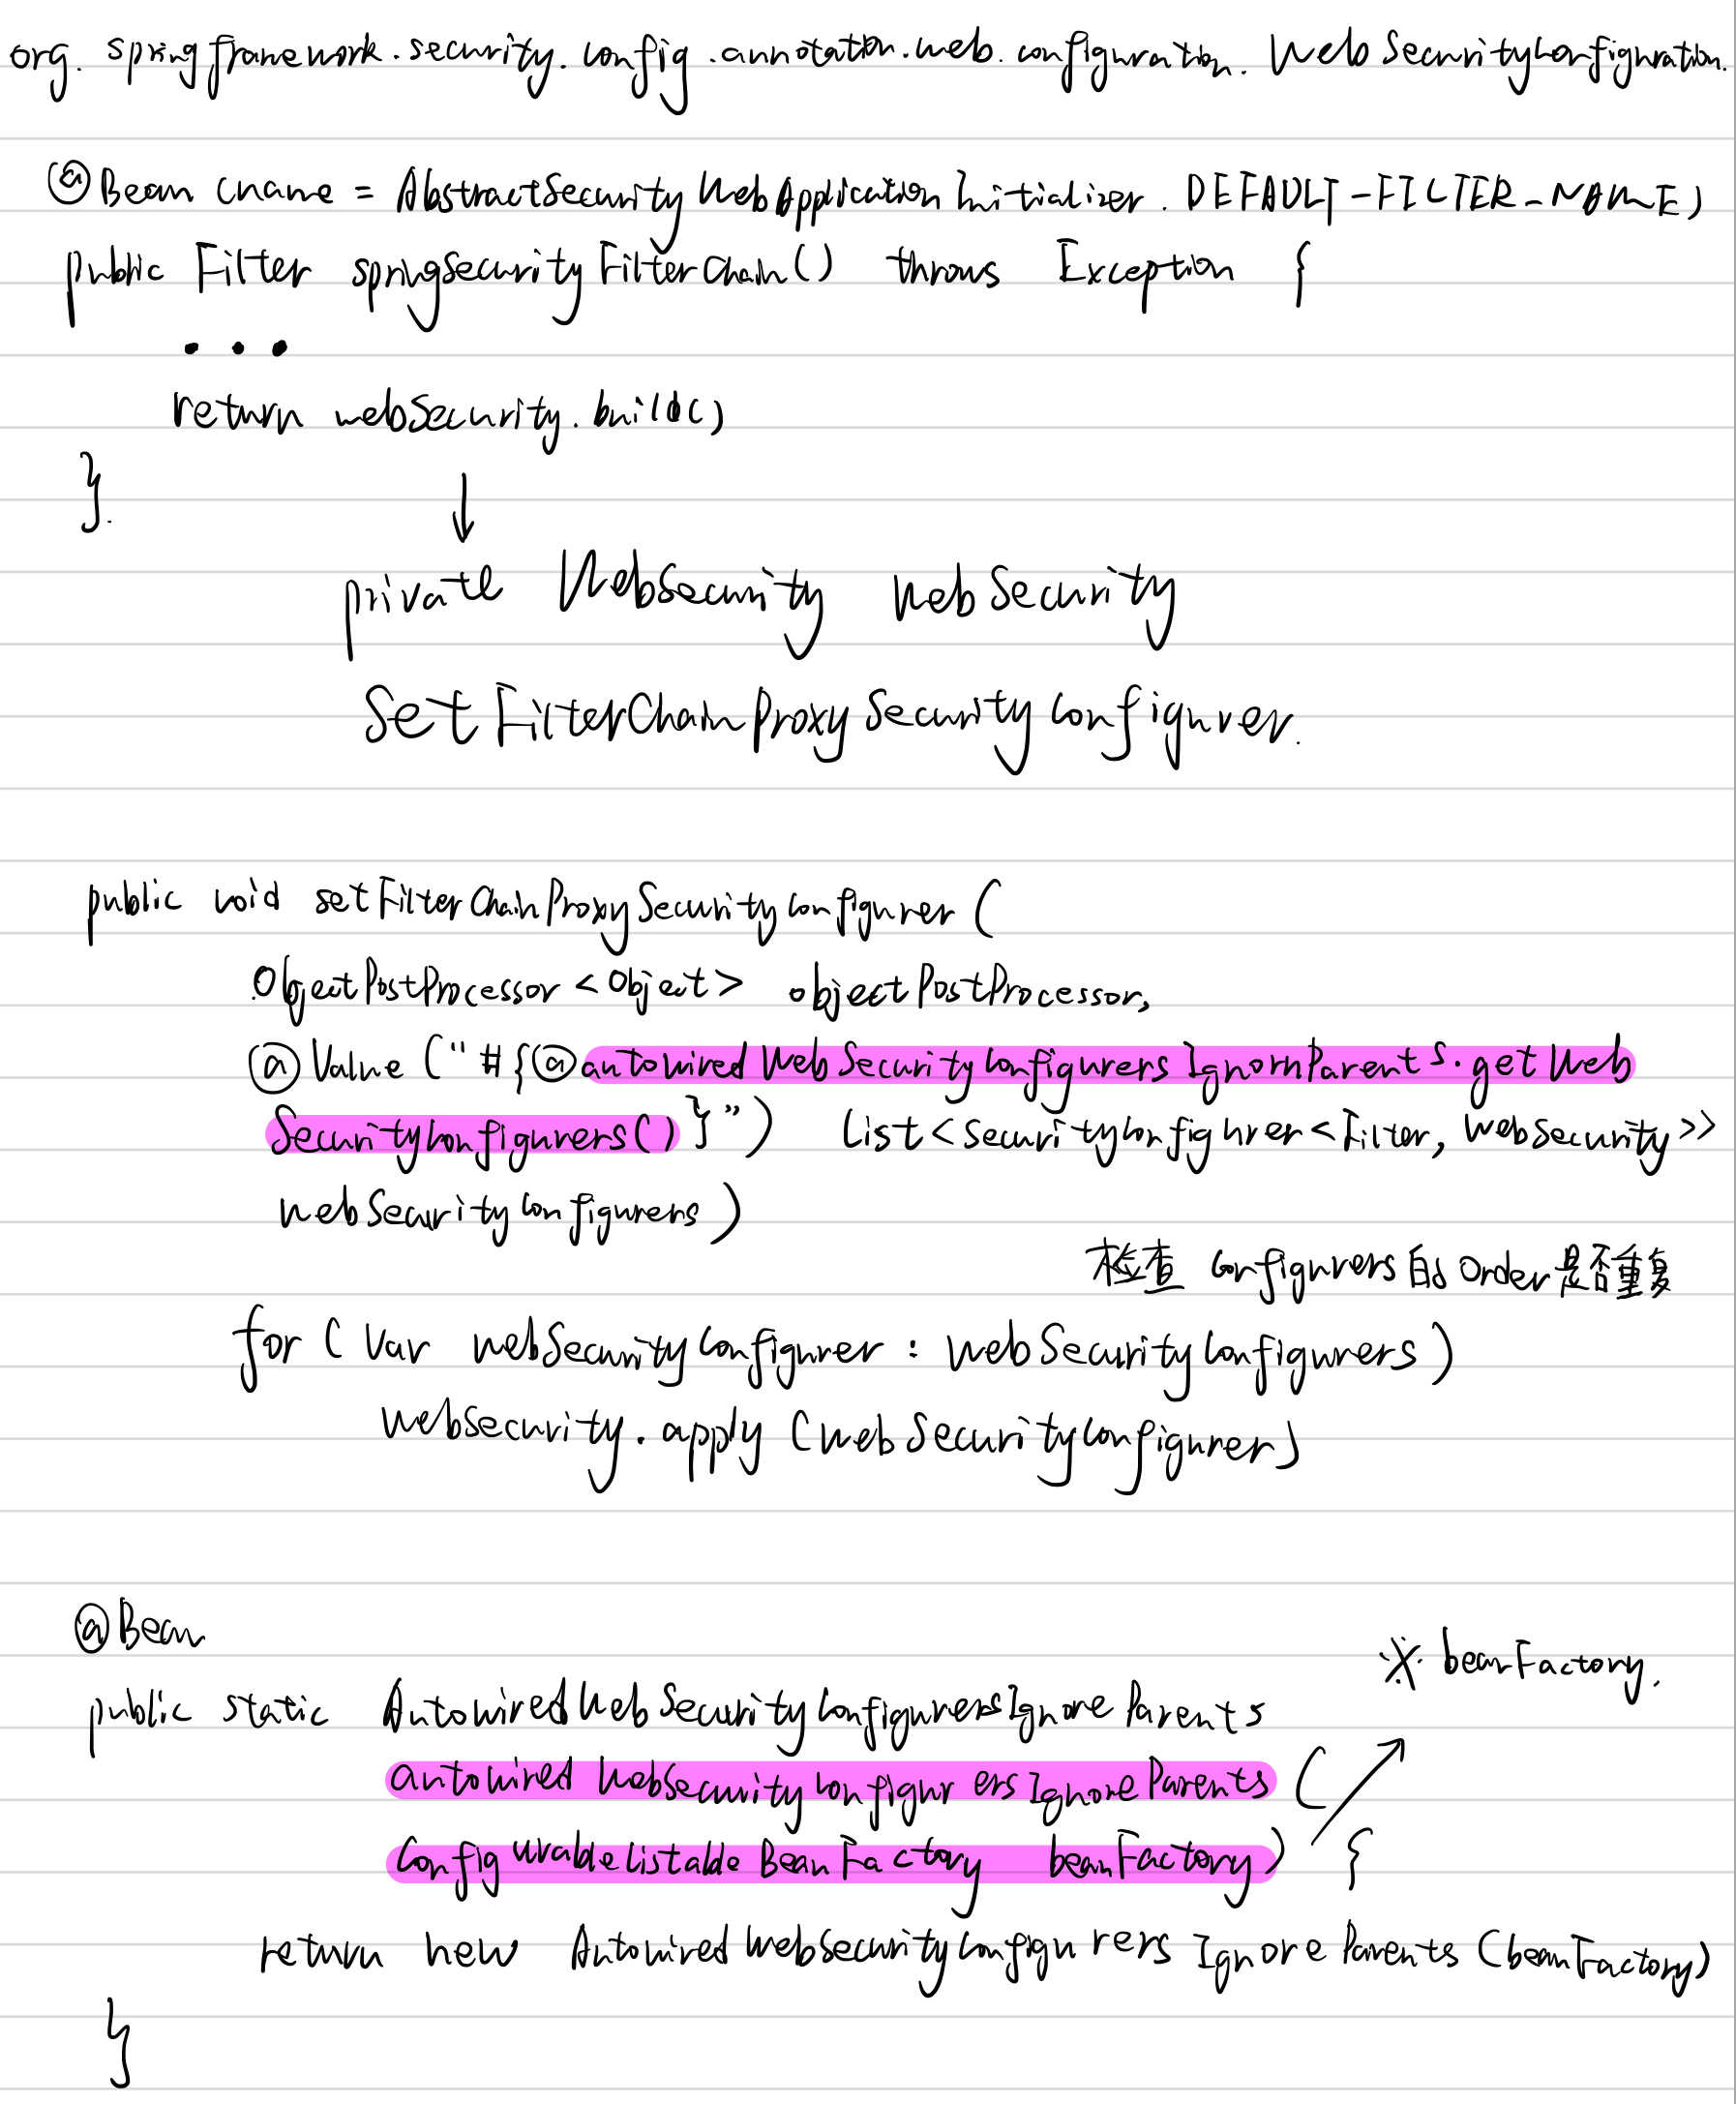 org.springframework.security.config.annotation.web.configuration.WebSecurityConfiguration.
@Bean (name = AbstractSecurityWebApplicationInitializer.DEFAULT-FILTER-NAME)
public Filter springSecurityFilterChain() throws Exception {
...
return webSecurity.build()
}.
↓
private WebSecurity webSecurity
SetFilterChainProxySecurityConfigurer.
public void setFilterChainProxySecurityConfigurer (
ObjectPostProcessor<Object> objectPostProcessor,
@Value ("#{@autowiredWebSecurityConfigurersIgnornParents.getWeb
SecurityConfigurers()}") List<SecurityConfigurer<Filter, WebSecurity>>
webSecurityConfigurers)
检查 Configurers的Order是否重复
for (Var webSecurityConfigurer : webSecurityConfigurers)
webSecurity.apply (webSecurityConfigurer)
@Bean
※. beanFactory.
public static AutowiredWebSecurityConfigurersIgnoreParents
autowiredWebSecurityConfigurersIgnoreParents (
ConfigurableListableBeanFactory beanFactory) {
return new AutowiredWebSecurityConfigurersIgnoreParents (beanFactory)
}